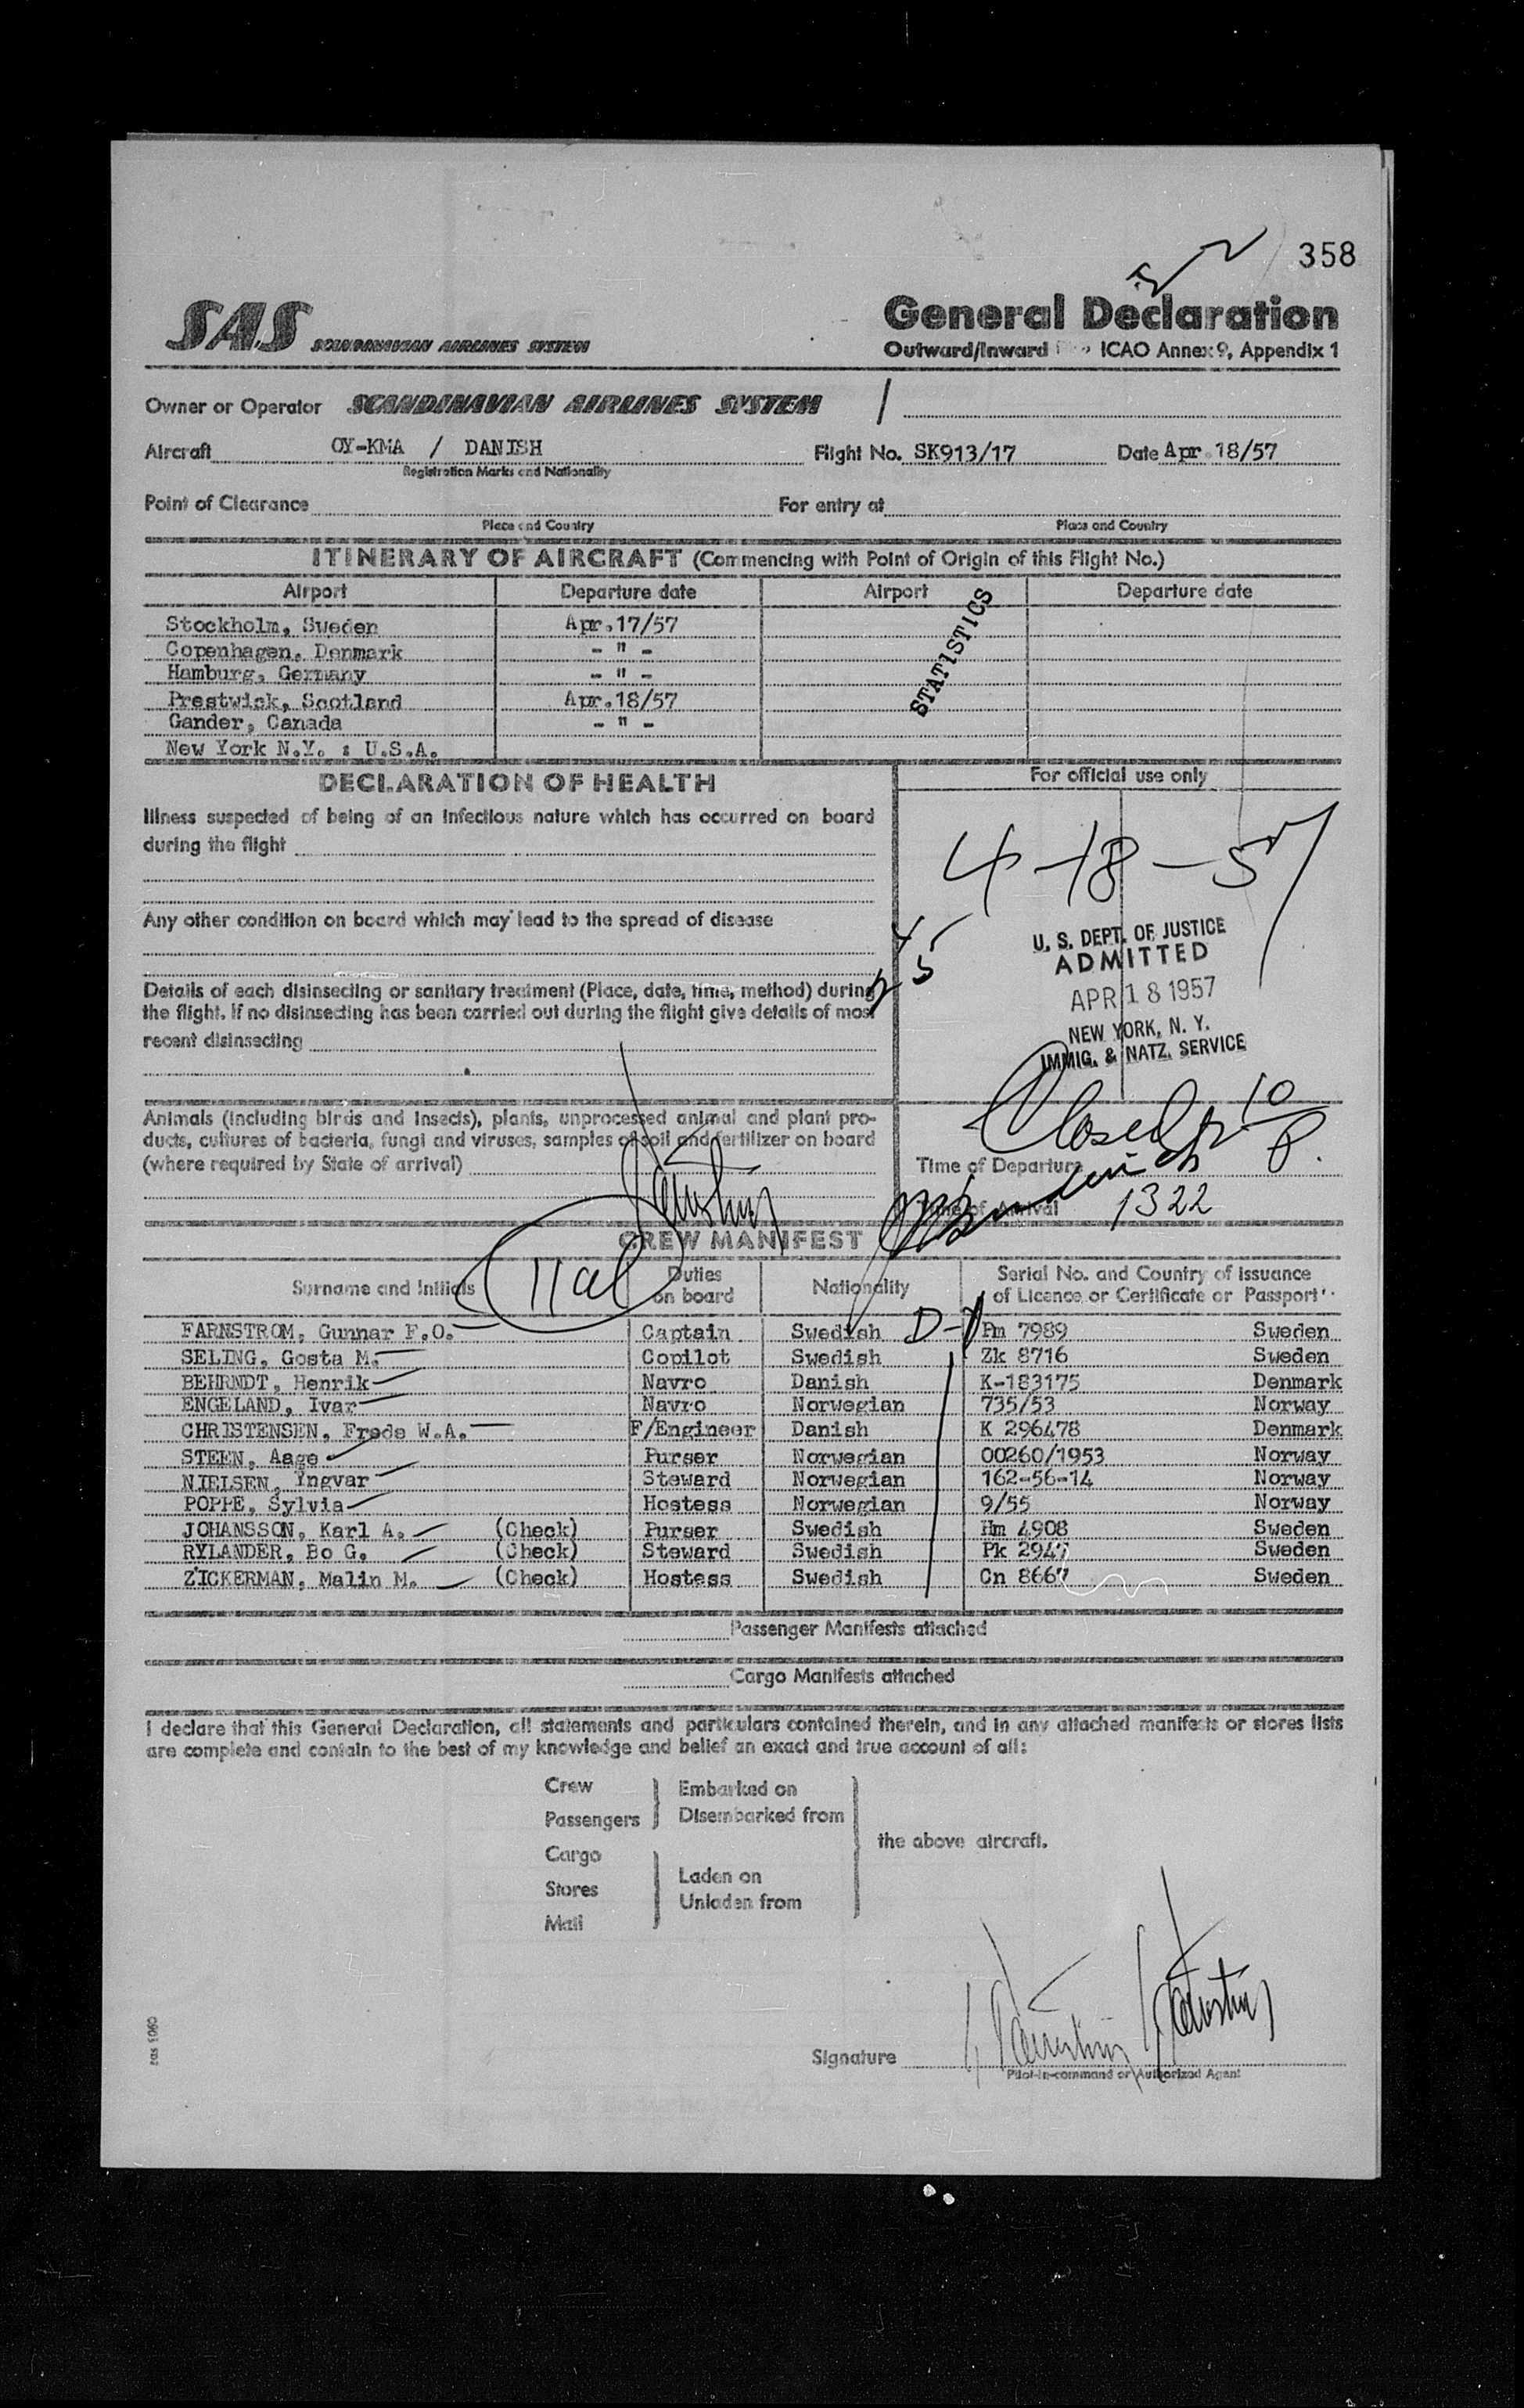 358
SAS SCANDINAVIAN AIRLINES SYSTEM
General Declaration
Outward/Inward ICAO Annex 9, Appendix 1
Owner or Operator SCANDINAVIAN AIRLINES SYSTEM
Aircraft OY-KMA / DANISH Flight No. SK913/17 Date Apr. 18/57
Registration Marks and Nationality
Point of Clearance For entry at
Place and Country Place and Country
ITINERARY OF AIRCRAFT (Commencing with Point of Origin of this Flight No.)
Airport Departure date Airport Departure date
Stockholm, Sweden Apr.17/57
Copenhagen, Denmark - " -
Hamburg, Germany - " -
Prestwick, Scotland Apr.18/57
Gander, Canada - " -
New York N.Y. : U.S.A.
STATISTICS
DECLARATION OF HEALTH
Illness suspected of being of an infectious nature which has occurred on board
during the flight
Any other condition on board which may lead to the spread of disease
Details of each disinsecting or sanitary treatment (Place, date, time, method) during
the flight. If no disinsecting has been carried out during the flight give details of most
recent disinsecting
Animals (including birds and insects), plants, unprocessed animal and plant pro-
ducts, cultures of bacteria, fungi and viruses, samples of soil and fertilizer on board
(where required by State of arrival)
For official use only
4-18-57
U. S. DEPT. OF JUSTICE
ADMITTED
APR 18 1957
NEW YORK, N. Y.
IMMIG. & NATZ. SERVICE
Closed
Time of Departure
Time of Arrival 1322
CREW MANIFEST
11 al
Surname and Initials Duties on board Nationality Serial No. and Country of Issuance
of Licence or Certificate or Passport
D-1
FARNSTROM, Gunnar F.O. Captain Swedish Pm 7989 Sweden
SELING, Gosta M. Copilot Swedish Zk 8716 Sweden
BEHRNDT, Henrik Navro Danish K-183175 Denmark
ENGELAND, Ivar Navro Norwegian 735/53 Norway
CHRISTENSEN, Frede W.A. F/Engineer Danish K 296478 Denmark
STEEN, Aage Purser Norwegian 00260/1953 Norway
NIELSEN, Ingvar Steward Norwegian 162-56-14 Norway
POPPE, Sylvia Hostess Norwegian 9/55 Norway
JOHANSSON, Karl A. (Check) Purser Swedish Hm 4908 Sweden
RYLANDER, Bo G. (Check) Steward Swedish Pk 2947 Sweden
ZICKERMAN, Malin M. (Check) Hostess Swedish Cn 8667 Sweden
Passenger Manifests attached
Cargo Manifests attached
I declare that this General Declaration, all statements and particulars contained therein, and in any attached manifests or stores lists
are complete and contain to the best of my knowledge and belief an exact and true account of all:
Crew
Passengers
Embarked on
Disembarked from
Cargo
Stores
Mail
Laden on
Unladen from
the above aircraft.
Signature
Pilot-in-command or Authorized Agent